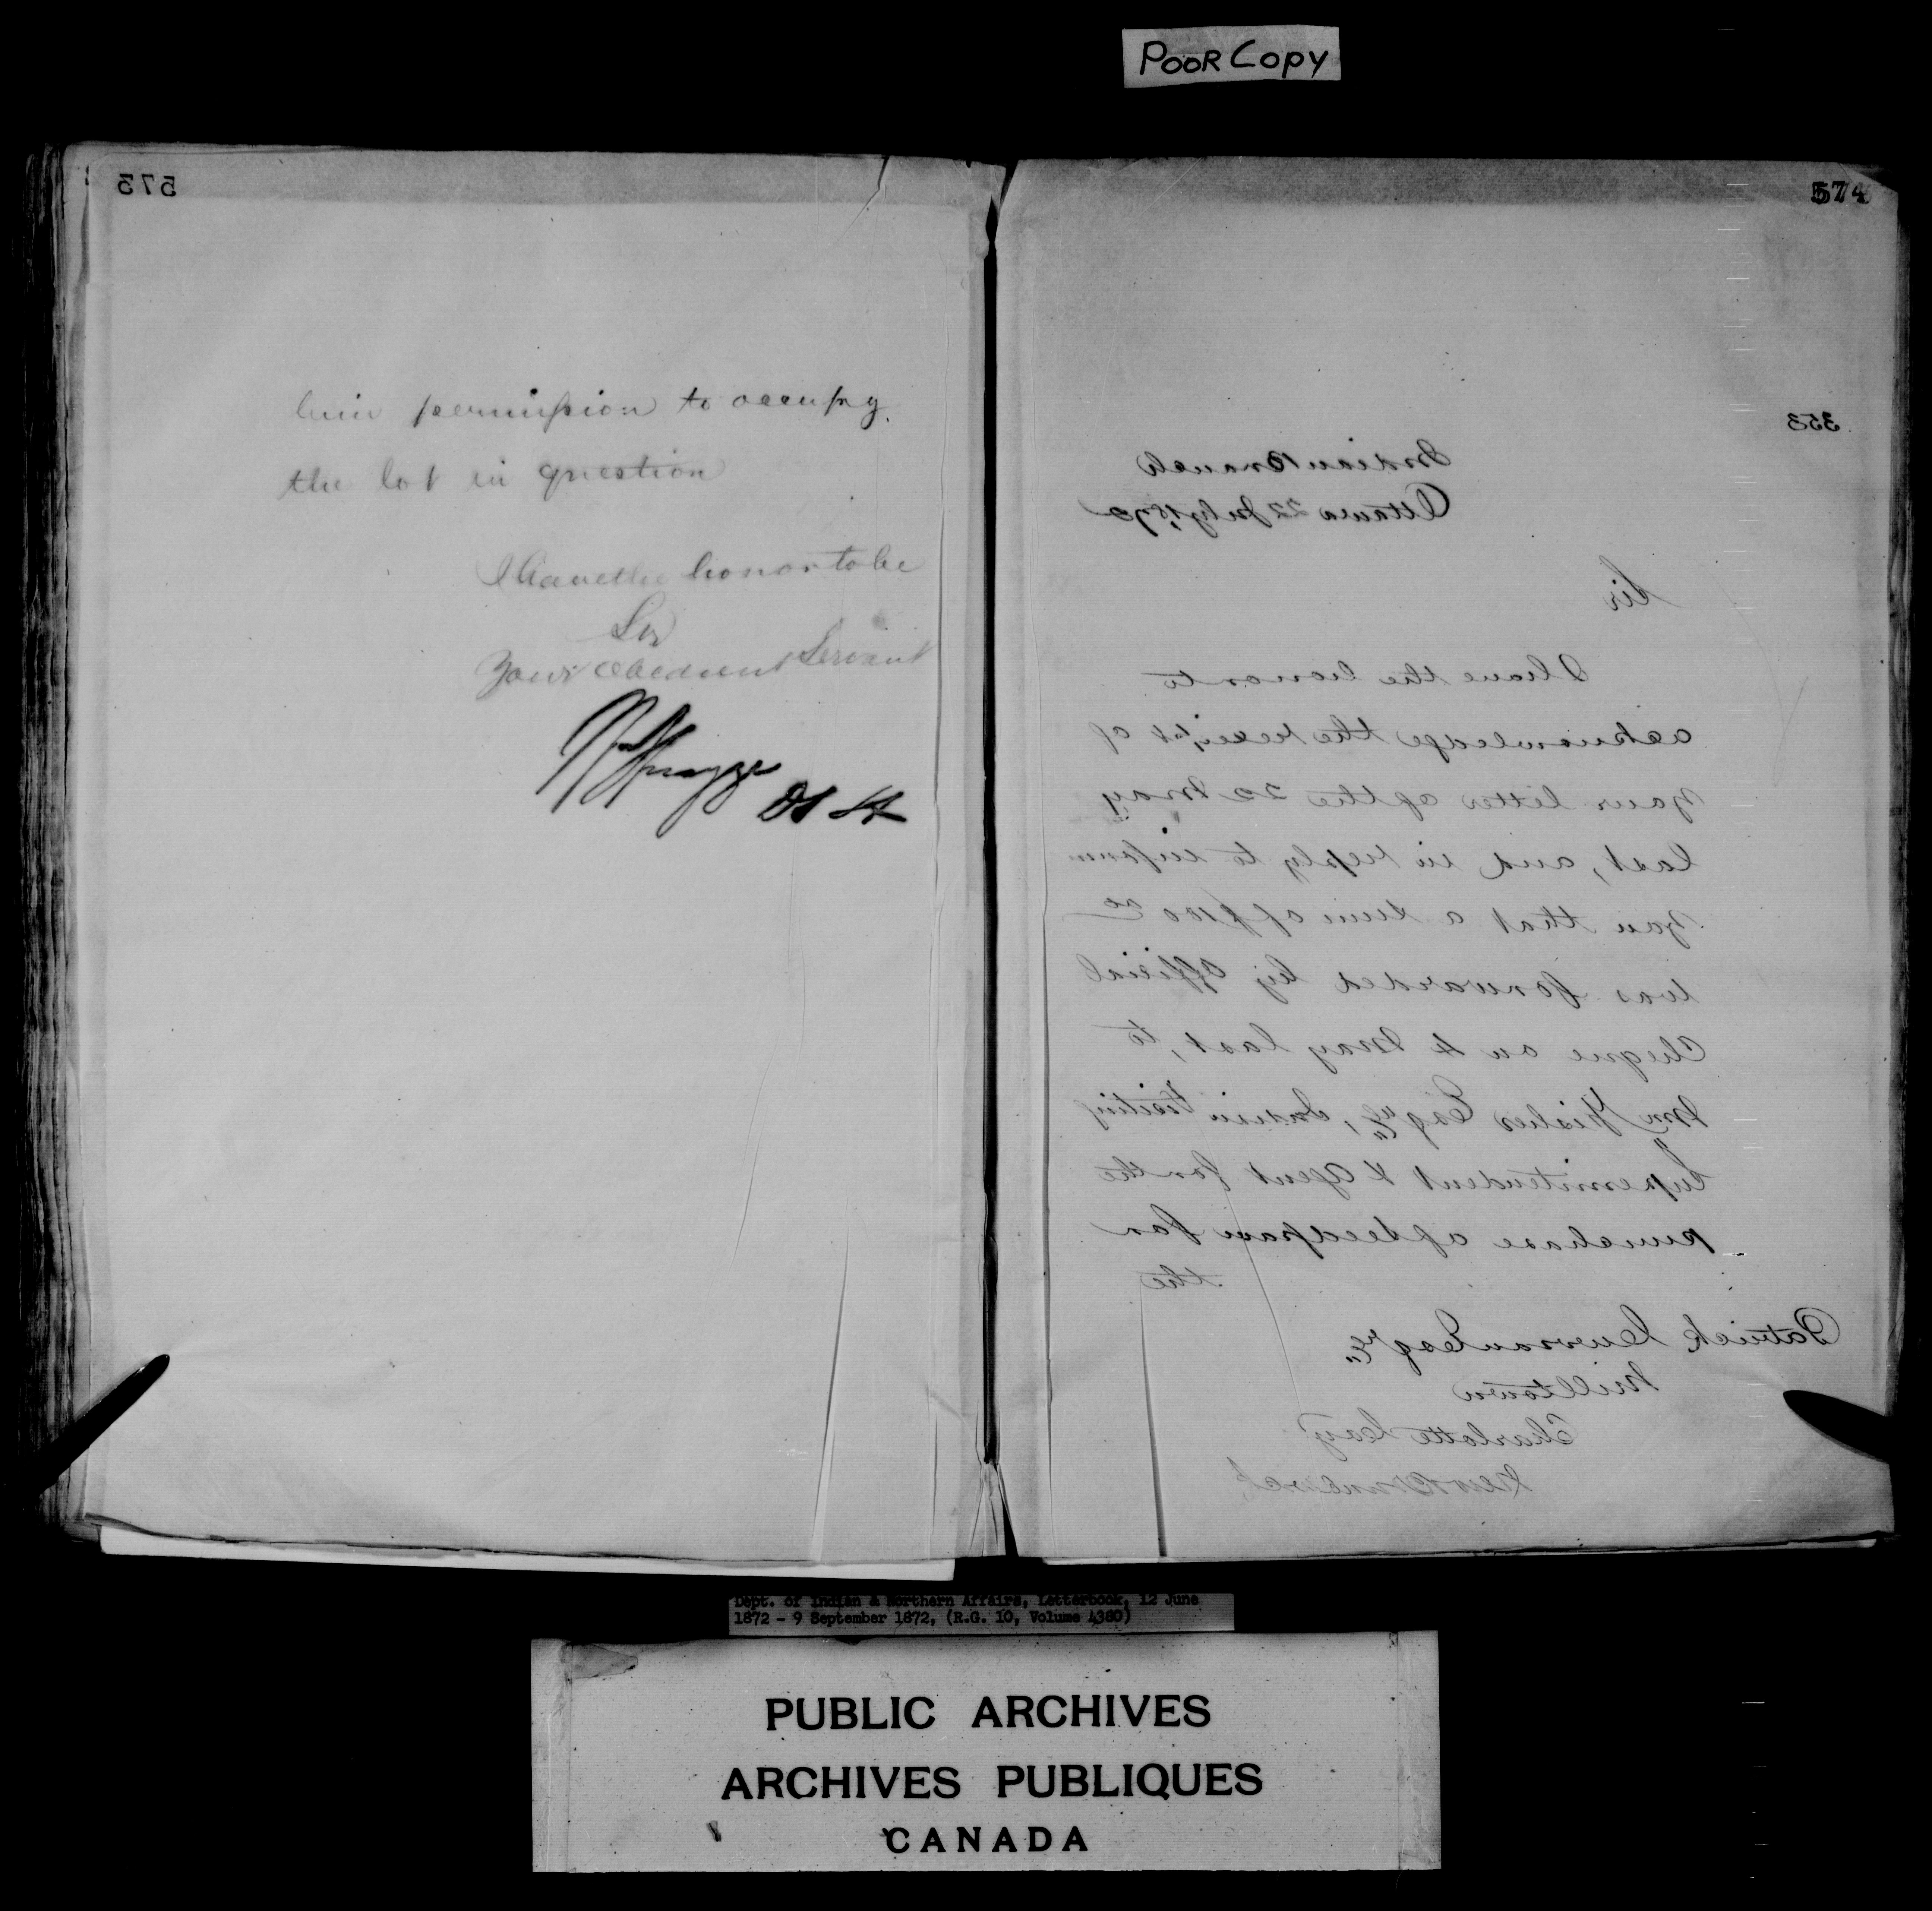 POOR Copy
573
him permission to occupy
the lot in question
I have the honor to be
Sir
Your Obedient Servant
DS IA
574
353
Indian Branch
Ottawa 22 July 1872
Sir
I have the honor to
acknowledge the receipt of
your letter of the 22 May
last, and in reply to inform
you that a sum of $100 00
was forwarded by official
Cheque on 4 May last, to
Wm Fisher Esqre, Indian Visiting
Superintendent & Agent for the
purchase of seed grain for
the
Patrick Curran Esqre
Milltown
Charlotte Cay
New Brunswick
Dept. of Indian & Northern Affairs, Letterbook, 12 June
1872 - 9 September 1872, (R.G. 10, Volume 4380)
PUBLIC ARCHIVES
ARCHIVES PUBLIQUES
CANADA